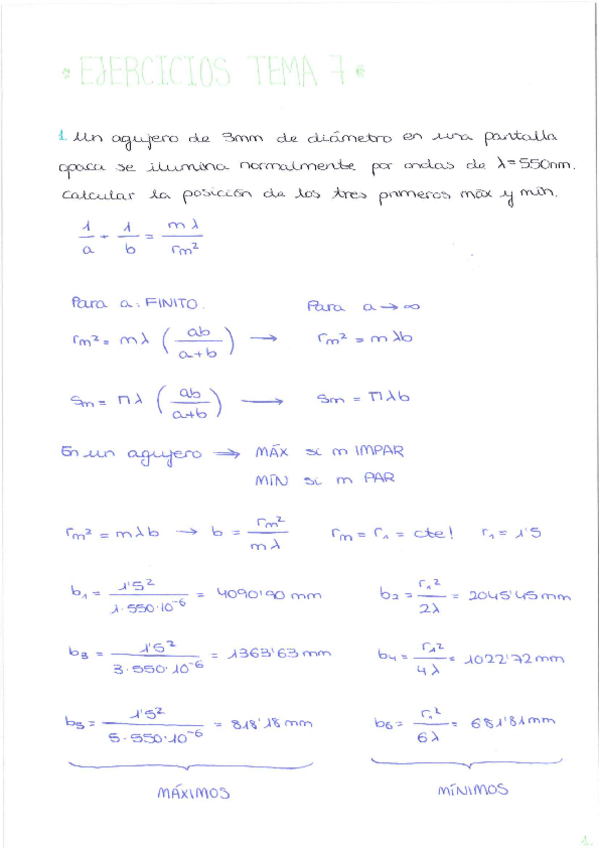 * EJERCICIOS TEMA 7 *
1. Un agujero de 3mm de diámetro en una pantalla
opaca se ilumina normalmente por ondas de λ=550nm.
Calcular la posición de los tres primeros máx y mín.
1/a + 1/b = mλ/rm²
Para a: FINITO. Para a→∞
rm² = mλ (ab/(a+b)) → rm² = mλb
Sm = Πλ (ab/(a+b)) → Sm = Πλb
En un agujero → MÁX si m IMPAR
MÍN si m PAR
rm² = mλb → b = rm²/mλ rm = r₁ = cte! r₁ = 1'5
b₁ = 1'5²/1·550·10⁻⁶ = 4090'90 mm b₂ = r₁²/2λ = 2045'45 mm
b₃ = 1'5²/3·550·10⁻⁶ = 1363'63 mm b₄ = r₁²/4λ = 1022'72 mm
b₅ = 1'5²/5·550·10⁻⁶ = 818'18 mm b₆ = r₁²/6λ = 681'81 mm
MÁXIMOS MÍNIMOS
1.